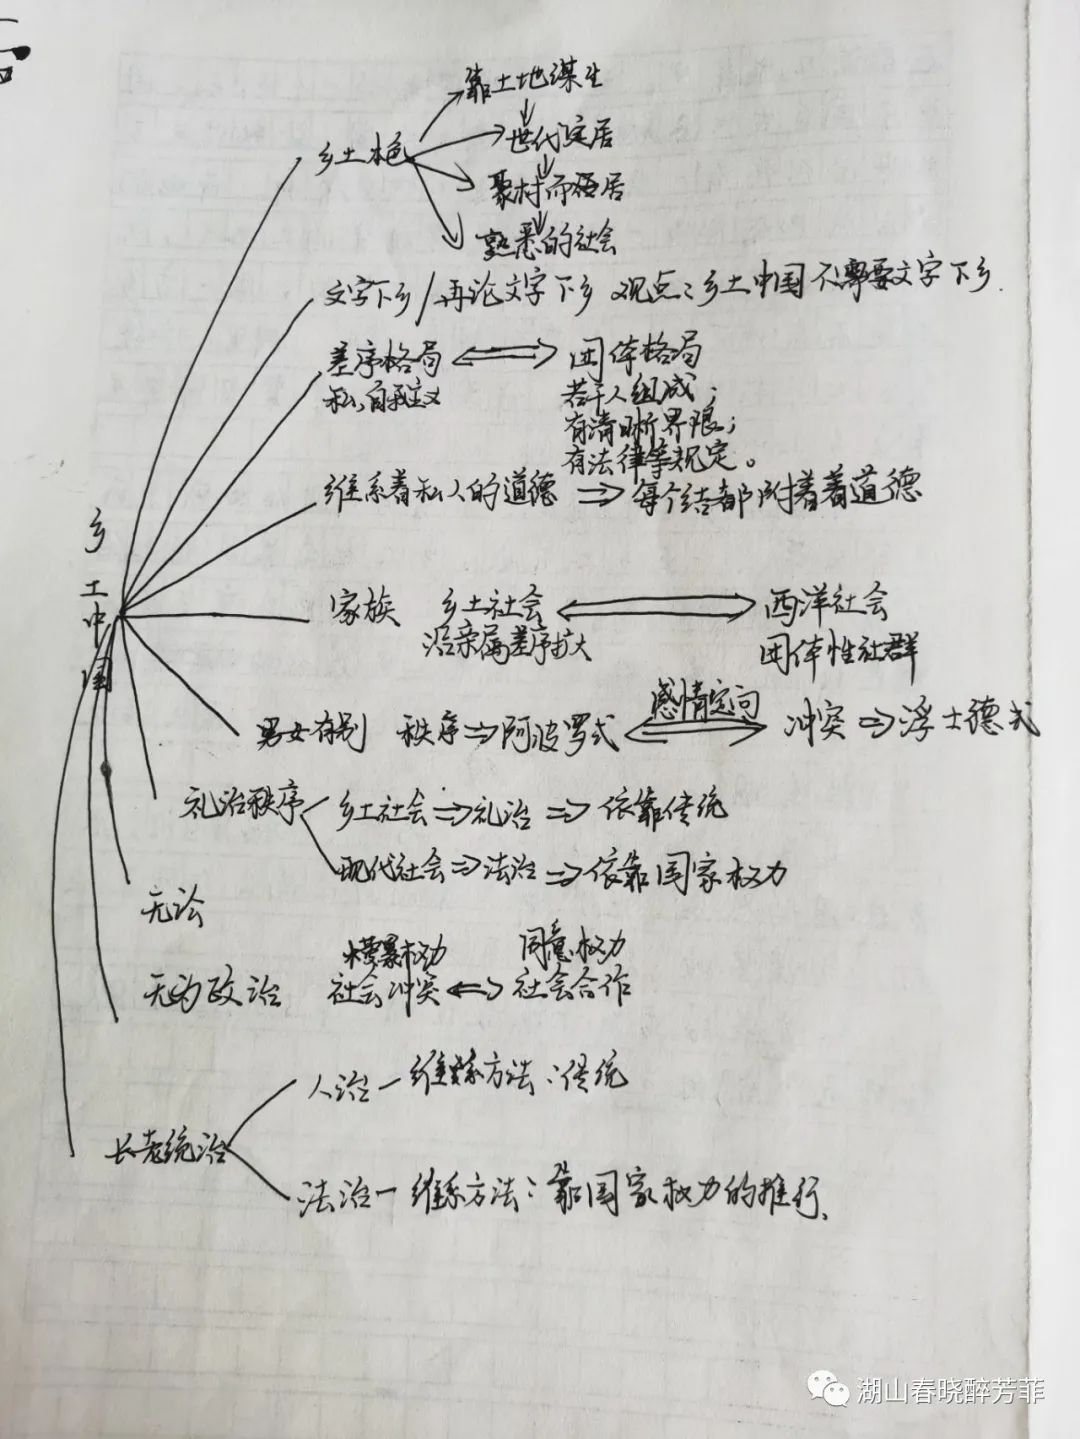 靠土地谋生
乡土本色
世代定居
聚村而居
熟悉的社会
文字下乡/再论文字下乡 观点:乡土中国不需要文字下乡.
差序格局 团体格局
私、自我主义 若干人组成;
有清晰界限;
有法律等规定。
维系着私人的道德 每个结都附着着道德
乡土中国
家族 乡土社会 西洋社会
沿亲属差序扩大 团体性社群
感情定向
男女有别 秩序⇒阿波罗式 冲突⇒浮士德式
礼治秩序 乡土社会⇒礼治⇒依靠传统
现代社会⇒法治⇒依靠国家权力
无讼
横暴权力 同意权力
无为政治 社会冲突 社会合作
人治一维系方法:传统
长老统治
法治一维系方法:靠国家权力的推行、
湖山春晓醉芳菲